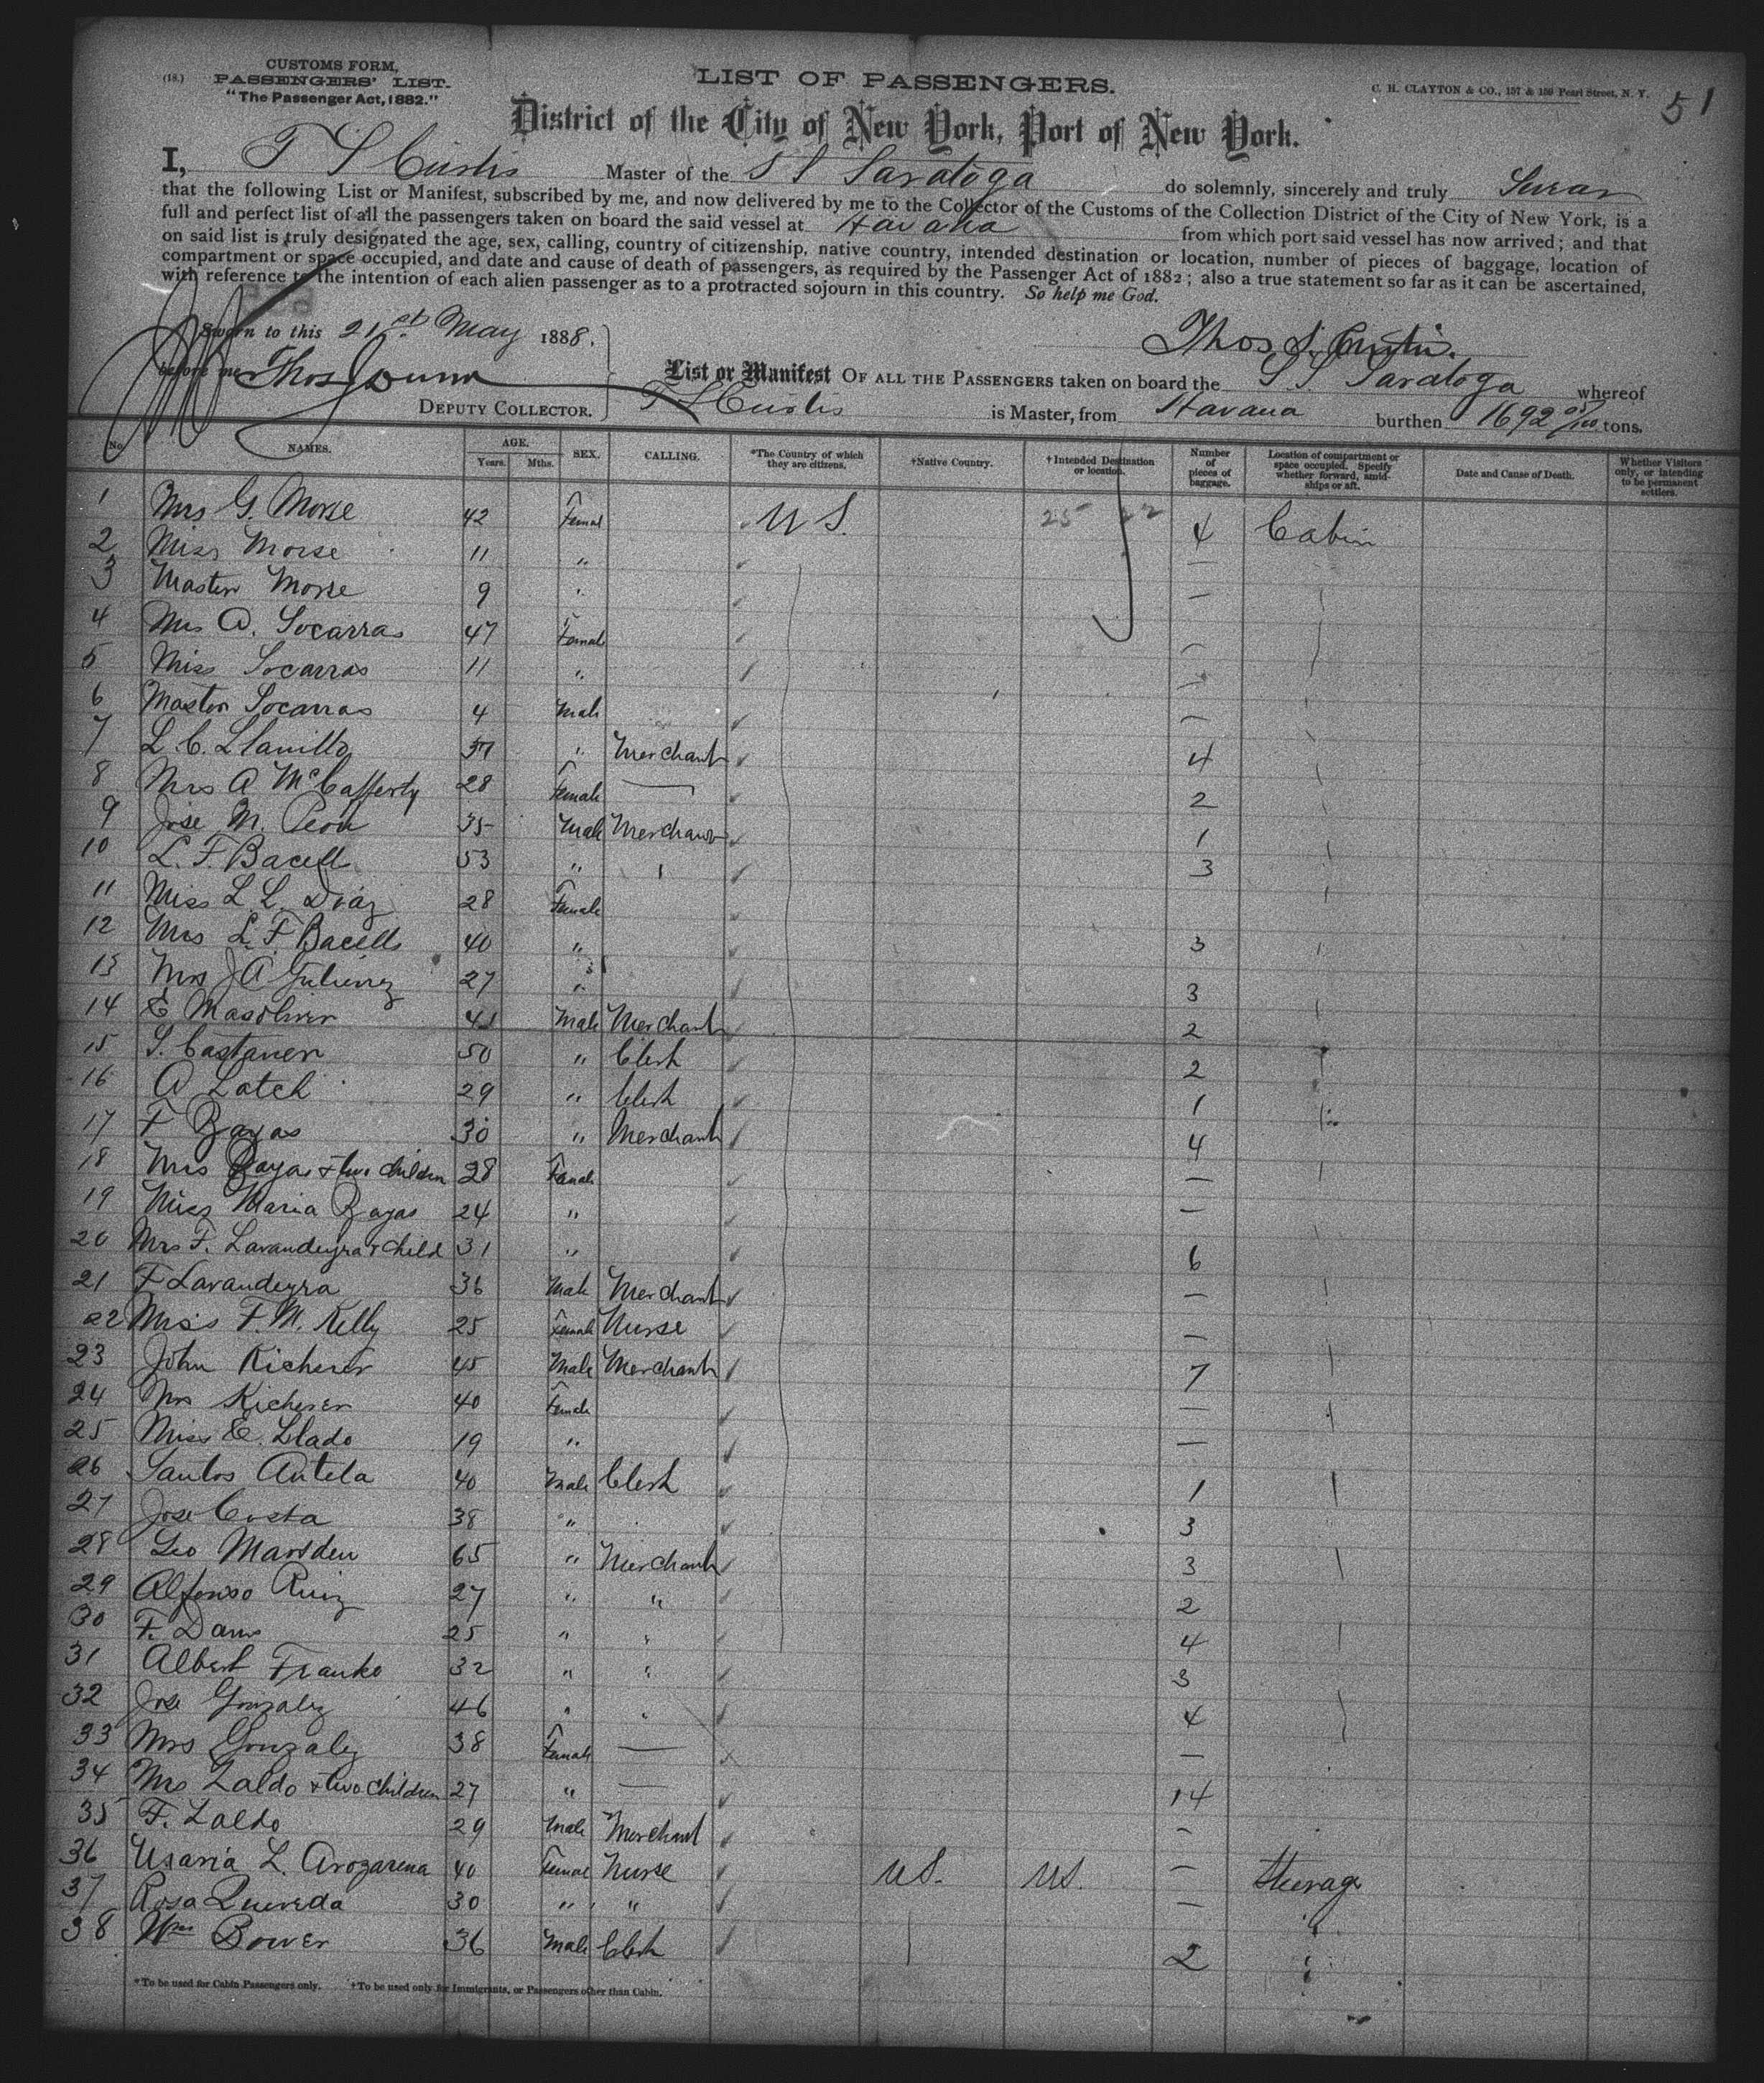 (18.) CUSTOMS FORM,
PASSENGERS' LIST.
"The Passenger Act, 1882."
LIST OF PASSENGERS.
C. H. CLAYTON & CO., 157 & 159 Pearl Street, N. Y.
51
District of the City of New York, Port of New York.
I, T S Curtis Master of the S S Saratoga do solemnly, sincerely and truly Swear
that the following List or Manifest, subscribed by me, and now delivered by me to the Collector of the Customs of the Collection District of the City of New York, is a
full and perfect list of all the passengers taken on board the said vessel at Havana from which port said vessel has now arrived; and that
on said list is truly designated the age, sex, calling, country of citizenship, native country, intended destination or location, number of pieces of baggage, location of
compartment or space occupied, and date and cause of death of passengers, as required by the Passenger Act of 1882; also a true statement so far as it can be ascertained,
with reference to the intention of each alien passenger as to a protracted sojourn in this country. So help me God.
Sworn to this 21st May 1888.
Thos S. Curtis.
before me Thos Dunn
DEPUTY COLLECTOR.
List or Manifest OF ALL THE PASSENGERS taken on board the S S Saratoga whereof
T S Curtis is Master, from Havana burthen 1692 /100 tons.
No. NAMES. AGE. Years. Mths. SEX. CALLING. *The Country of which they are citizens. †Native Country. †Intended Destination or location. Number of pieces of baggage. Location of compartment or space occupied. Specify whether forward, amidships or aft. Date and Cause of Death. Whether Visitors only, or intending to be permanent settlers.
1 Mrs G. Morse 42 Femal U S. 25 22 4 Cabin
2 Miss Morse 11 " —
3 Master Morse 9 " —
4 Mrs A. Socarras 47 Female —
5 Miss Socarras 11 " —
6 Master Socarras 4 Male —
7 L. C. Llanillo 37 " Merchant 4
8 Mrs A McCafferty 28 Female — 2
9 Jose M. Peon 35 Male Merchant 1
10 L. F. Bacell 53 " " 3
11 Miss L L. Diaz 28 Female
12 Mrs L. F Bacells 40 " 3
13 Mrs J A Gutierrez 27 " 3
14 E Masoliver 41 Male Merchant 2
15 S. Castaner 50 " Clerk 2
16 A Latch 29 " Clerk 1
17 F Zayas 30 " Merchant 4
18 Mrs Zayas & two children 28 Female —
19 Miss Maria Zayas 24 " —
20 Mrs F. Lavandeyra & child 31 " 6
21 F Lavandeyra 36 Male Merchant —
22 Miss F. M. Kelly 25 Female Nurse —
23 John Richerer 45 Male Merchant 7
24 Mrs Richerer 40 Female —
25 Miss E. Llado 19 " —
26 Santos Antela 40 Male Clerk 1
27 Jose Costa 38 " 3
28 Geo Marsden 65 " Merchant 3
29 Alfonso Ruiz 27 " " 2
30 F. 25 " " 4
31 Albert Franko 32 " " 3
32 Jose Gonzalez 46 " " 4
33 Mrs Gonzalez 38 Female — —
34 Mrs Zaldo & two children 27 " — 14
35 F. Zaldo 29 Male Merchant —
36 L. Arozarena 40 Female Nurse US. US. — Steerage
37 Rosa Queveda 30 " " — "
38 Wm Bower 36 Male Clerk 2 "
*To be used for Cabin Passengers only. †To be used only for Immigrants, or Passengers other than Cabin.